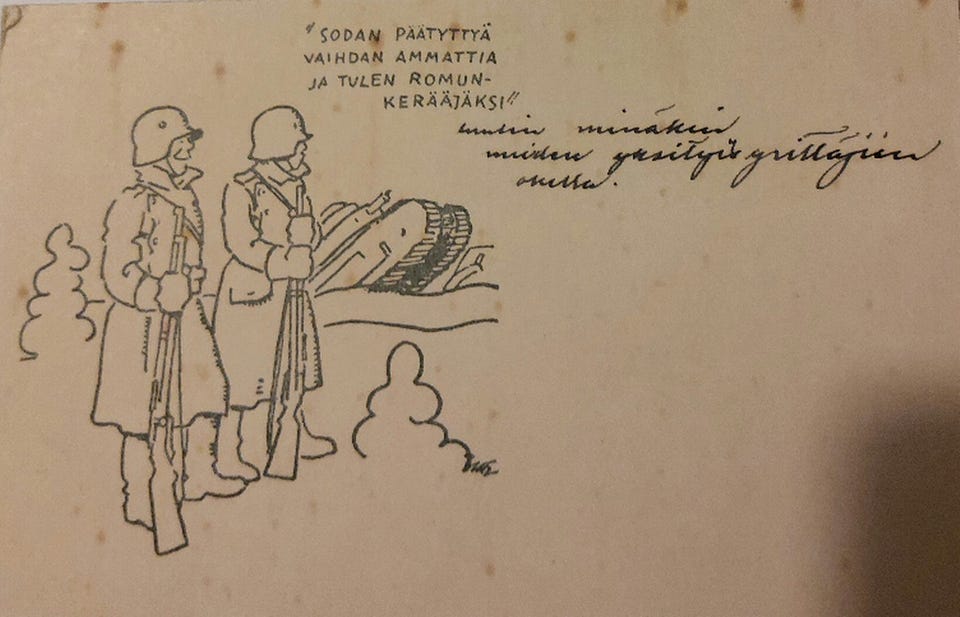 "SODAN PÄÄTYTTYÄ
VAIHDAN AMMATTIA
JA TULEN ROMUN-
KERÄÄJÄKSI"
minäkin
muiden yksityisyrittäjien
ohella.